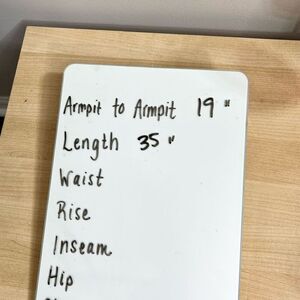 Armpit to Armpit 19 "
Length 35 "
Waist
Rise
Inseam
Hip